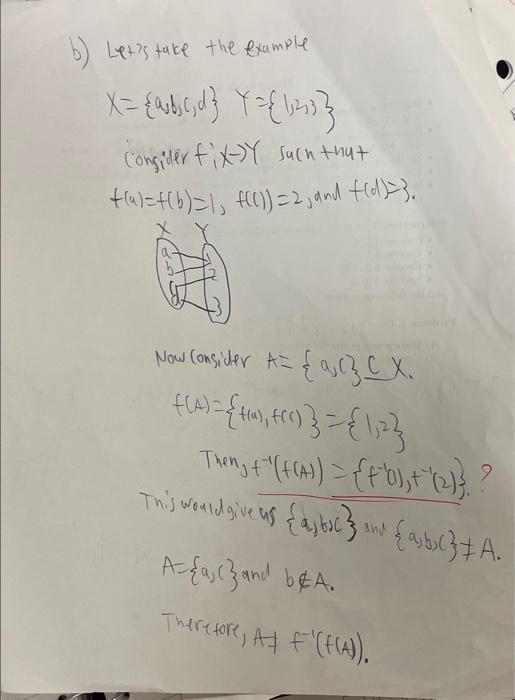 b) Let's take the example
X = {a,b,c,d} Y = {1,2,3}
Consider f:X→Y such that
f(a)=f(b)=1, f(c))=2, and f(d)=3.
X Y
a 1
b 2
c
d 3
Now consider A = {a,c} ⊆ X.
f(A) = {f(a), f(c)} = {1,2}
Then, f⁻¹(f(A)) = {f⁻¹(1), f⁻¹(2)}. ?
This would give us {a,b,c} and {a,b,c} ≠ A.
A = {a,c} and b ∉ A.
Therefore, A ≠ f⁻¹(f(A)).